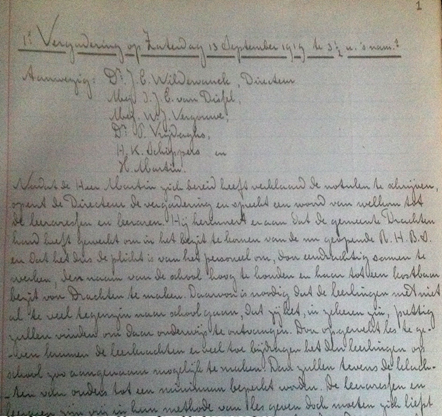 1
1e Vergadering op Zaterdag 13 September 1919 te 3½ u. 's nam.
Aanwezig: Dr. J. E. Wildervanck, Directeur
Mej. J. J. E. van
Mej. W. J. Vergouwe,
Dr.
H. K. Schippers en
H. Martin.
Nadat de Heer Martin zich bereid heeft verklaard de notulen te schrijven,
opent de Directeur de vergadering en spreekt een woord van welkom tot
de leeraressen en leeraren. Hij herinnert er aan dat de gemeente Drachten
hard heeft gewerkt om in het bezit te komen van de nu geopende R.H.B.S.
en dat het dus de plicht is van het personeel om, door eendrachtig samen te
werken, den naam van de school hoog te houden en haar tot een kostbaar
bezit van Drachten te maken. Daarvoor is noodig dat de leerlingen met niet
al te veel tegenzin naar school gaan, dat zij het, in zekeren zin, prettig
zullen vinden om daar onderwijs te ontvangen. Door opgewekt les te ge-
ven kunnen de leerkrachten er veel toe bijdragen het den leerlingen op
school zoo aangenaam mogelijk te maken. Dan zullen tevens de klach-
ten van ouders tot een minimum beperkt worden. De leeraressen en
leeraren van hun methode van les geven doch moeten zich liefst